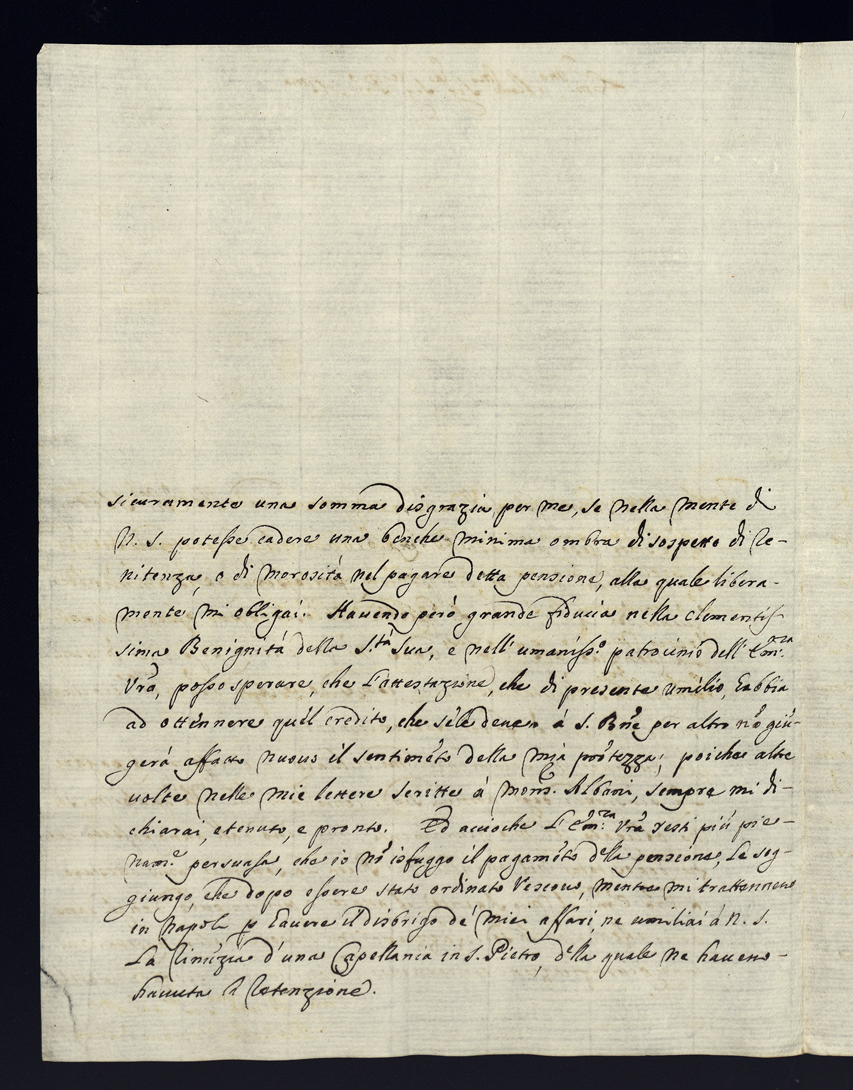 sicuramente una somma disgrazia per me, se nella mente di
N. S. potesse cadere una benche minima ombra di sospetto di re-
nitenza, o di morosità nel pagare detta pensione, alla quale libera-
mente mi obligai. Havendo però grande fiducia nella clementis-
sima Benignità della S.tà Sua, e nell' umaniss.o patrocinio dell' Em.za
Vrã, posso sperare, che l'attestazione, che di presente umilio, habbia
ad ottennere quel credito, che se le deve. A S. Bne per altro nõ giũ-
gerà affatto nuovo il sentimẽto della mia prõtezza; poiche altre
volte nelle mie lettere scritte à Mons. Albani, sempre mi di-
chiarai, e tenuto, e pronto. Ed accioche l' Em.za Vrã resti più pie-
nam.e persuasa, che io nõ isfuggo il pagamẽto della pensione, le sog-
giungo, che dopo essere stato ordinato Vescovo, mentre mi trattennevo
in Napoli p havere il disbrigo de' miei affari, ne umiliai à N. S.
la rinũzia d'una Capellania in S. Pietro, della quale ne havevo
havuta la retenzione.